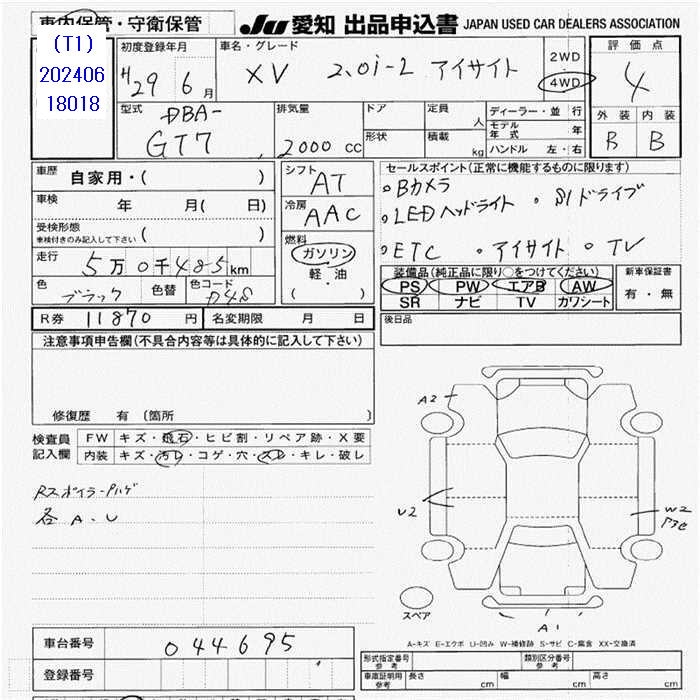 車内保管・守衛保管
JU 愛知 出品申込書 JAPAN USED CAR DEALERS ASSOCIATION
(T1)
202406
18018
初度登録年月
H29 6 月
車名・グレード
XV 2.0i-L アイサイト
2WD
4WD
評価点
4
外装 内装
B B
型式
DBA-
GT7
排気量
2000 CC
ドア
形状
定員 人
積載 kg
ディーラー・並行
モデル年式 年
ハンドル 左・右
車歴
自家用・( )
車検 年 月( 日)
受検形態
車検付きのみ記入して下さい ( )
走行
5万0千485km
色 ブラック 色替 色コード D4S
シフト
AT
冷房
AAC
燃料
ガソリン
軽・油
( )
セールスポイント(正常に機能するものに限ります)
・Bカメラ
・LEDヘッドライト ・SIドライブ
・ETC ・アイサイト ・TV
装備品(純正品に限り○をつけてください)
PS PW エアB AW
SR ナビ TV カワシート
新車保証書
有・無
R券 11870 円 名変期限 月 日
後日品
注意事項申告欄(不具合内容等は具体的に記入して下さい)
修復歴 有 〔箇所 〕
検査員
記入欄
FW キズ・飛石・ヒビ割・リペア跡・X要
内装 キズ・汚レ・コゲ・穴・スレ・キレ・破レ
Rスポイラーハゲ
各A.U
A2
U2
W2
スペア
A1
A-キズ E-エクボ U-凹み W-補修跡 S-サビ C-腐食 XX-交換済
車台番号 044695
登録番号
形式指定番号
参考
類別区分番号
参考
車庫証明用
参考
長さ cm 幅 cm 高さ cm